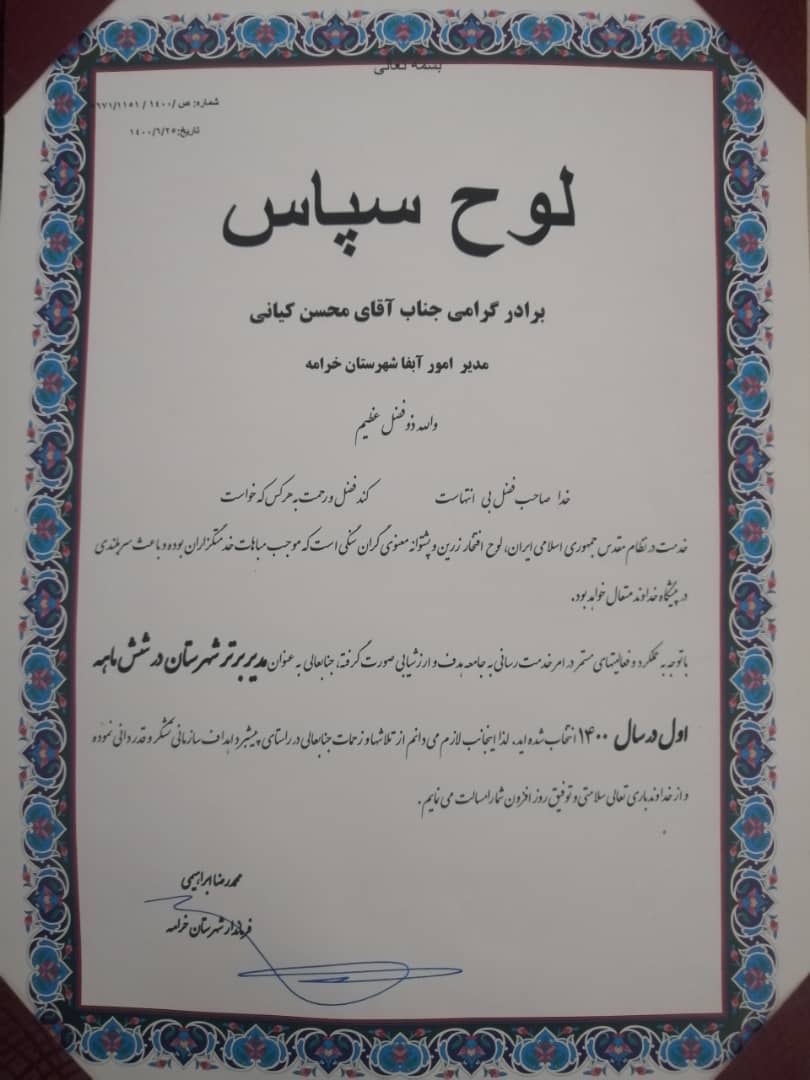 بسمه تعالی
شماره: ص /۱۴۰۰ / ۹۶۷۱/۱۱۵۱
تاریخ: ۱۴۰۰/۶/۲۵
لوح سپاس
برادر گرامی جناب آقای محسن کیانی
مدیر امور آبفا شهرستان خرامه
والله ذو فضل عظیم
خدا صاحب فضل بی انتهاست کند فضل و رحمت به هر کس که خواست
خدمت در نظام مقدس جمهوری اسلامی ایران، لوح افتخار زرین و پشتوانه معنوی گران سنگی است که موجب مباهات خدمتگزاران بوده و باعث سربلندی
در پیشگاه خداوند متعال خواهد بود.
با توجه به عملکرد و فعالیتهای مستمر در امر خدمت رسانی به جامعه هدف و ارزشیابی صورت گرفته، جنابعالی به عنوان مدیر برتر شهرستان در شش ماهه
اول در سال ۱۴۰۰ انتخاب شده اید. لذا اینجانب لازم می دانم از تلاشها و زحمات جنابعالی در راستای پیشبرد اهداف سازمانی تشکر و قدردانی نموده
و از خداوند باری تعالی سلامتی و توفیق روز افزون شما را مسالت می نمایم.
محمدرضا ابراهیمی
فرماندار شهرستان خرامه